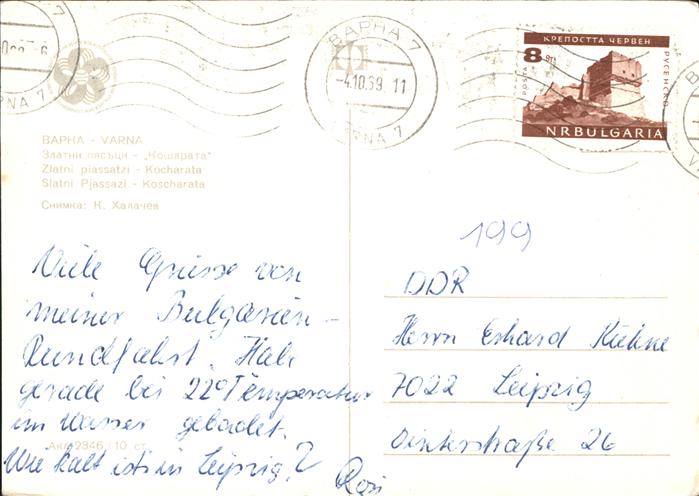 ВАРНА 7
-4.10.69 11
VARNA 7
КРЕПОСТТА ЧЕРВЕН
8 ст
ПОЩА
РУСЕНСКО
NRBULGARIA
ВАРНА - VARNA
Златни пясъци - „Кошарата"
Zlatni piassatzi - Kocharata
Slatni Pjassazi - Koscharata
Снимка: К. Халачев
Viele Grüsse von
meiner Bulgarien-
Rundfahrt. Habe
gerade bei 22° Temperatur
im Wasser gebadet.
Акл 2346 / 10 ст.
Wie kalt ists in Leipzig?
199
DDR
Herrn Erhard Kühne
7022 Leipzig
Dinterstraße 26